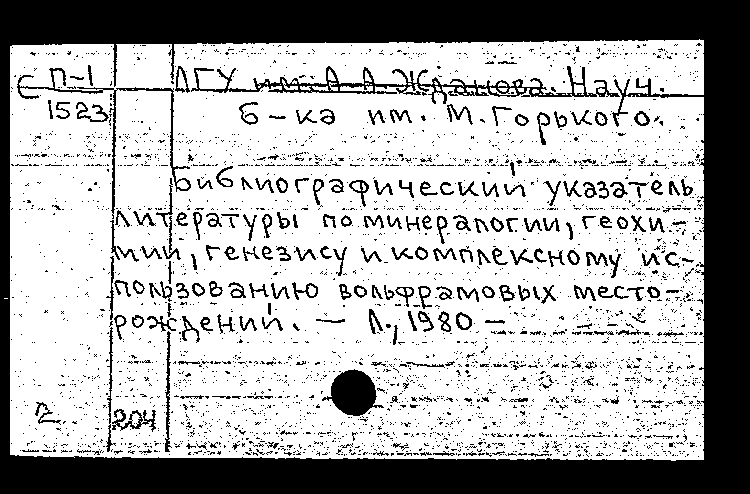 С П-1 ЛГУ им. А. А. Жданова. Науч.
1523 б-ка им. М. Горького.
Библиографический указатель
литературы по минералогии, геохи-
мии, генезису и комплексному ис-
пользованию вольфрамовых место-
рождений. — Л., 1980 —
204